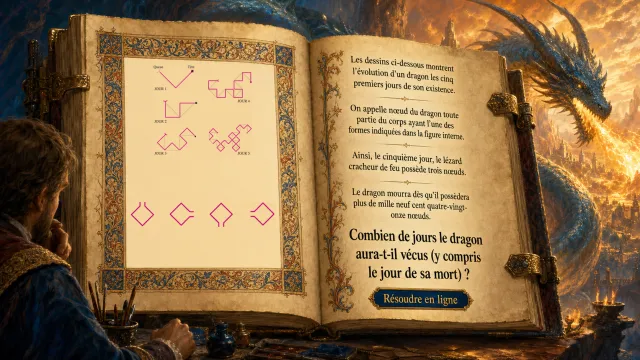 Queue
Tête
JOUR 1
JOUR 4
JOUR 2
JOUR 3
JOUR 5
Les dessins ci-dessous montrent
l'évolution d'un dragon les cinq
premiers jours de son existence.
On appelle nœud du dragon toute
partie du corps ayant l'une des
formes indiquées dans la figure interne.
Ainsi, le cinquième jour, le lézard
cracheur de feu possède trois nœuds.
Le dragon mourra dès qu'il possèdera
plus de mille neuf cent quatre-vingt-
onze nœuds.
Combien de jours le dragon
aura-t-il vécus (y compris
le jour de sa mort) ?
Résoudre en ligne